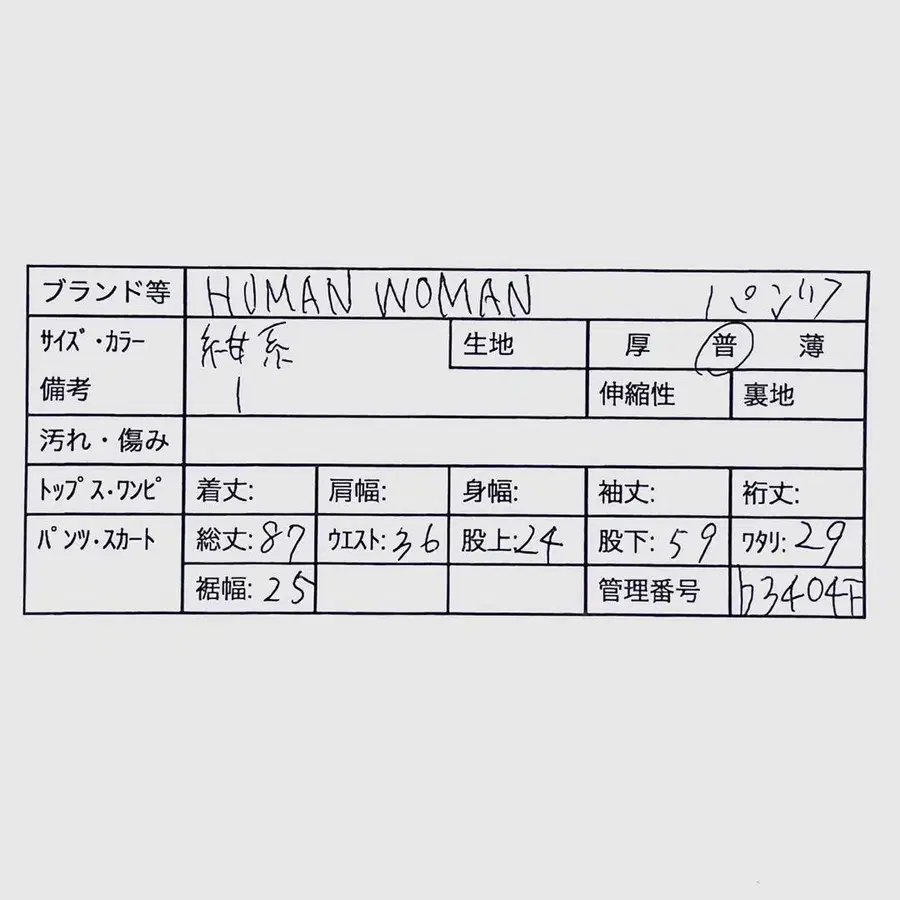 ブランド等 HUMAN WOMAN パンツ
サイズ・カラー 紺系 生地 厚 普 薄
備考 1 伸縮性 裏地
汚れ・傷み
トップス・ワンピ 着丈: 肩幅: 身幅: 袖丈: 裄丈:
パンツ・スカート 総丈:87 ウエスト:36 股上:24 股下:59 ワタリ:29
裾幅:25 管理番号 b3404F